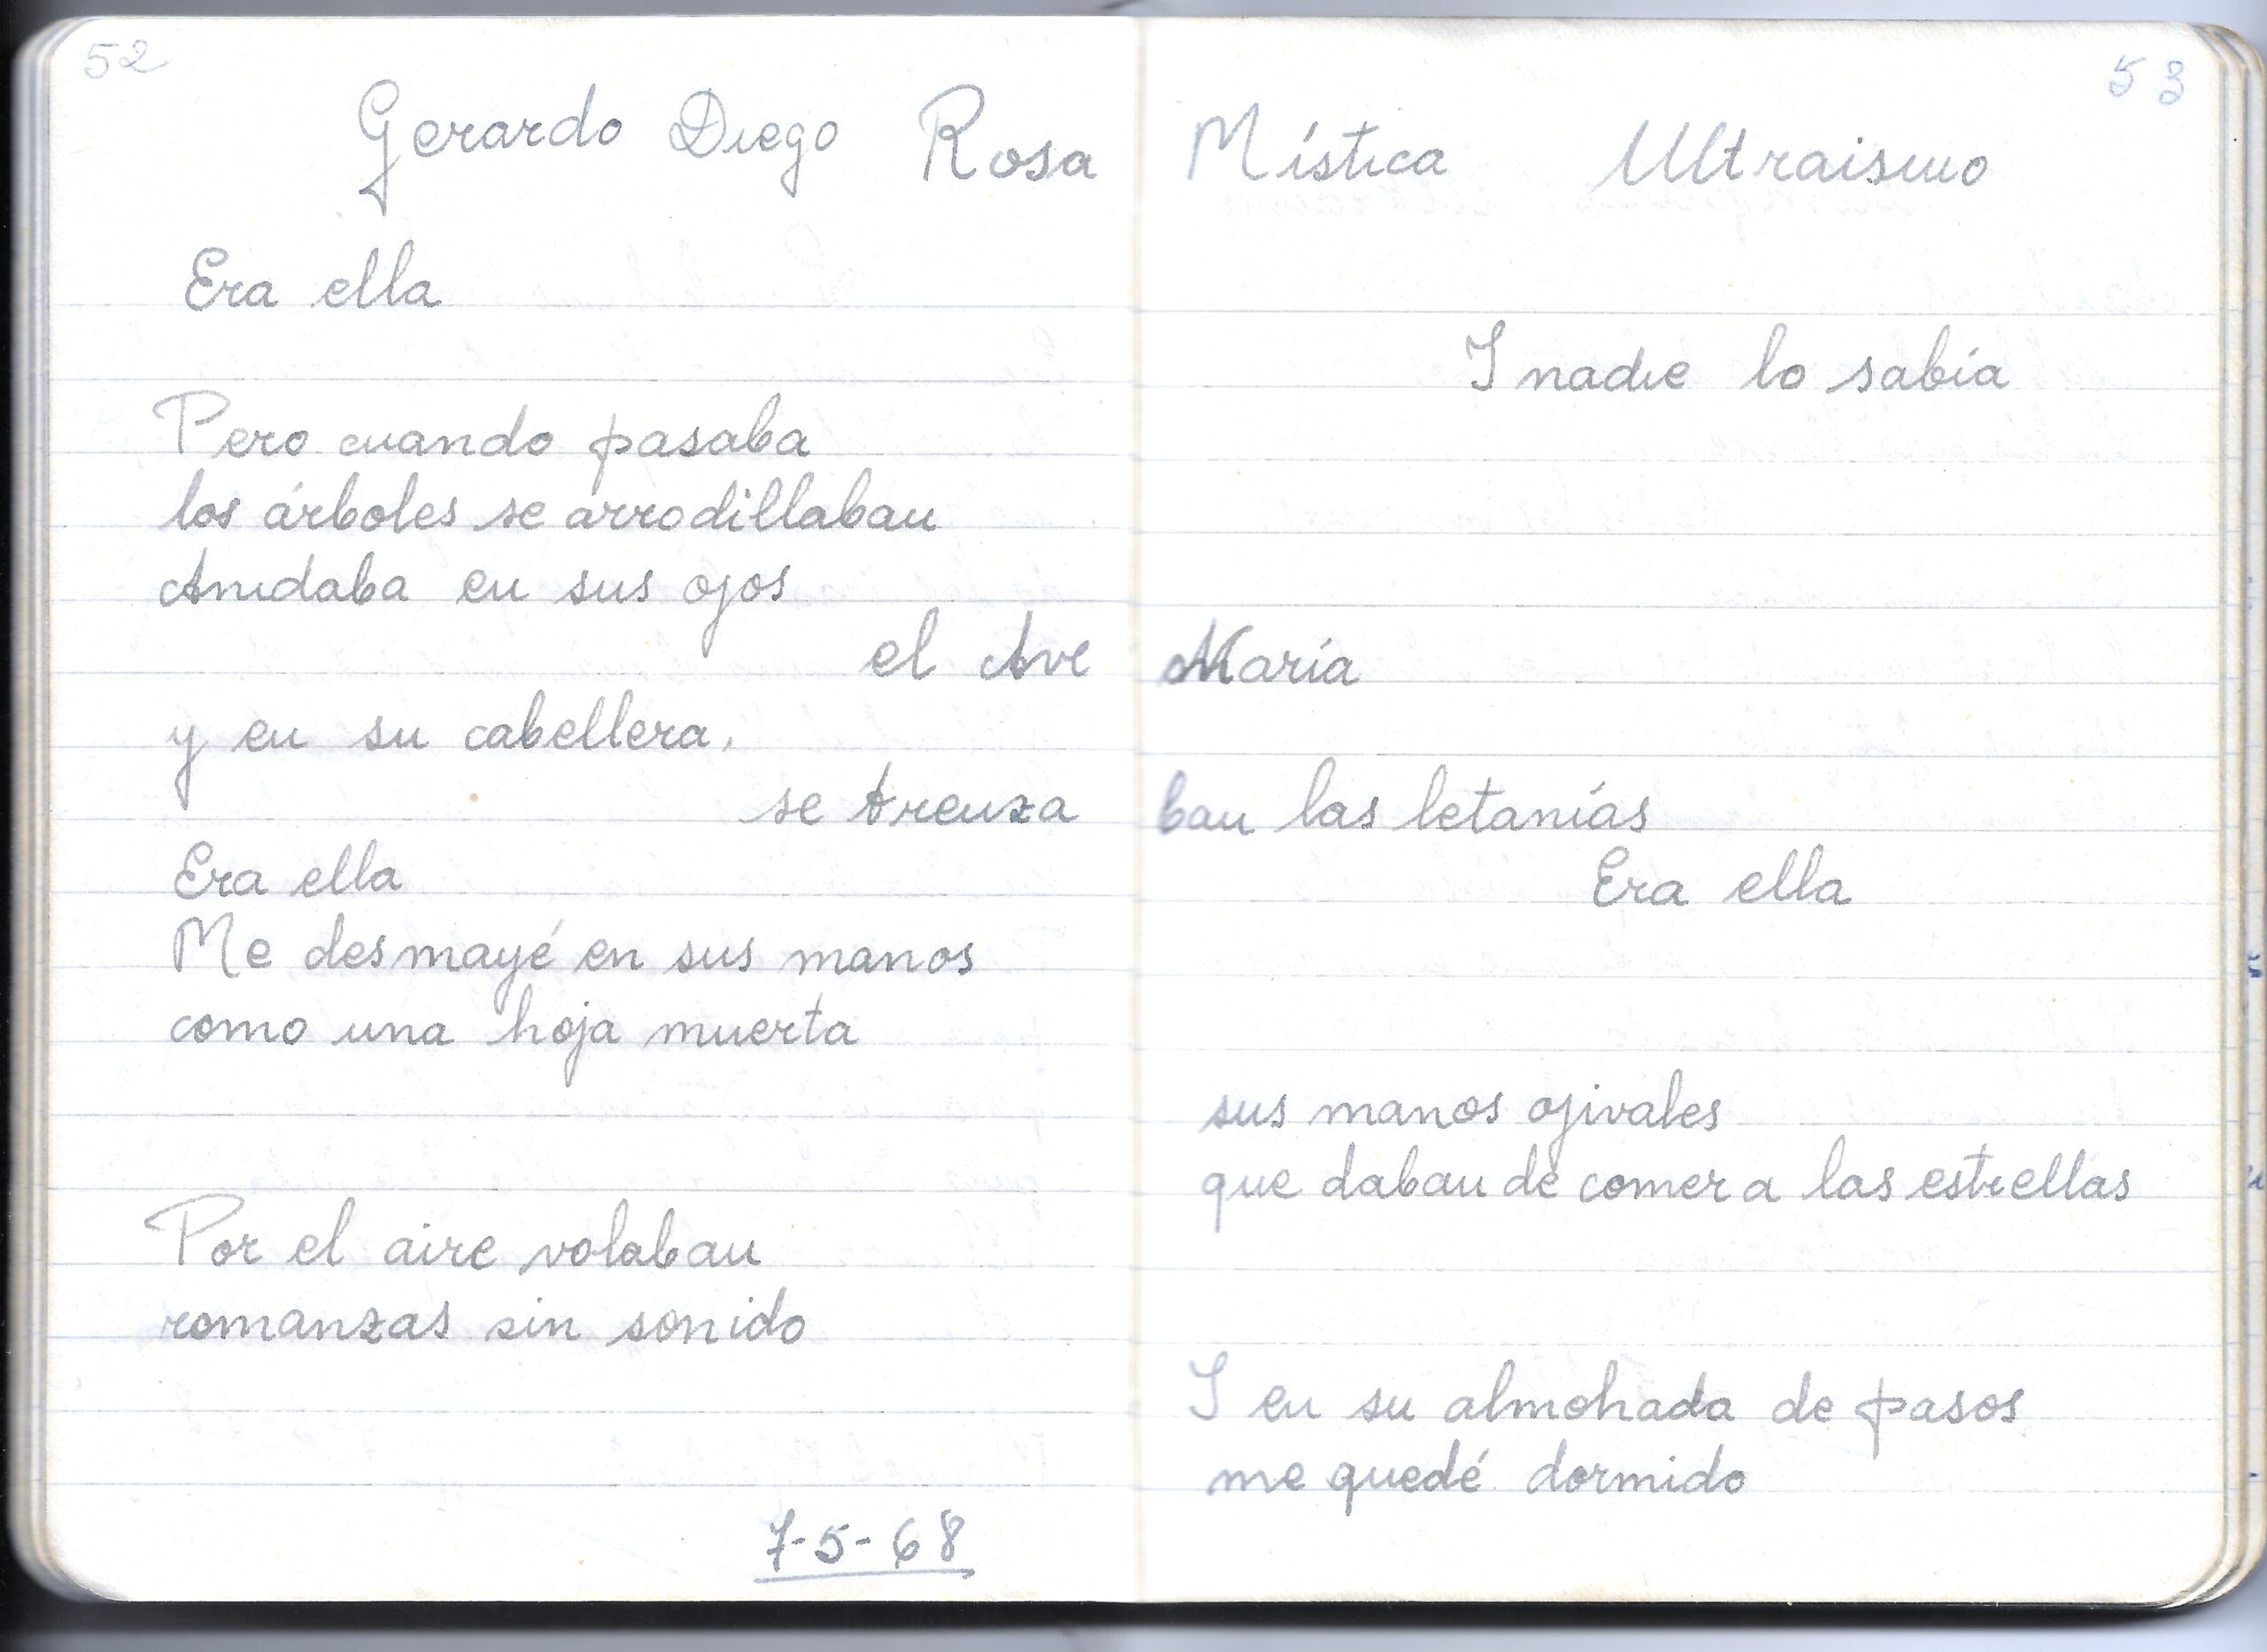 52
53
Gerardo Diego Rosa Mística Ultraismo
Era ella
Y nadie lo sabía
Pero cuando pasaba
los árboles se arrodillaban
Anidaba en sus ojos
el Ave María
y en su cabellera.
se trenza ban las letanías
Era ella Era ella
Me desmayé en sus manos
como una hoja muerta
sus manos ojivales
que daban de comer a las estrellas
Por el aire volaban
romanzas sin sonido
Y en su almohada de pasos
me quedé dormido
7-5-68